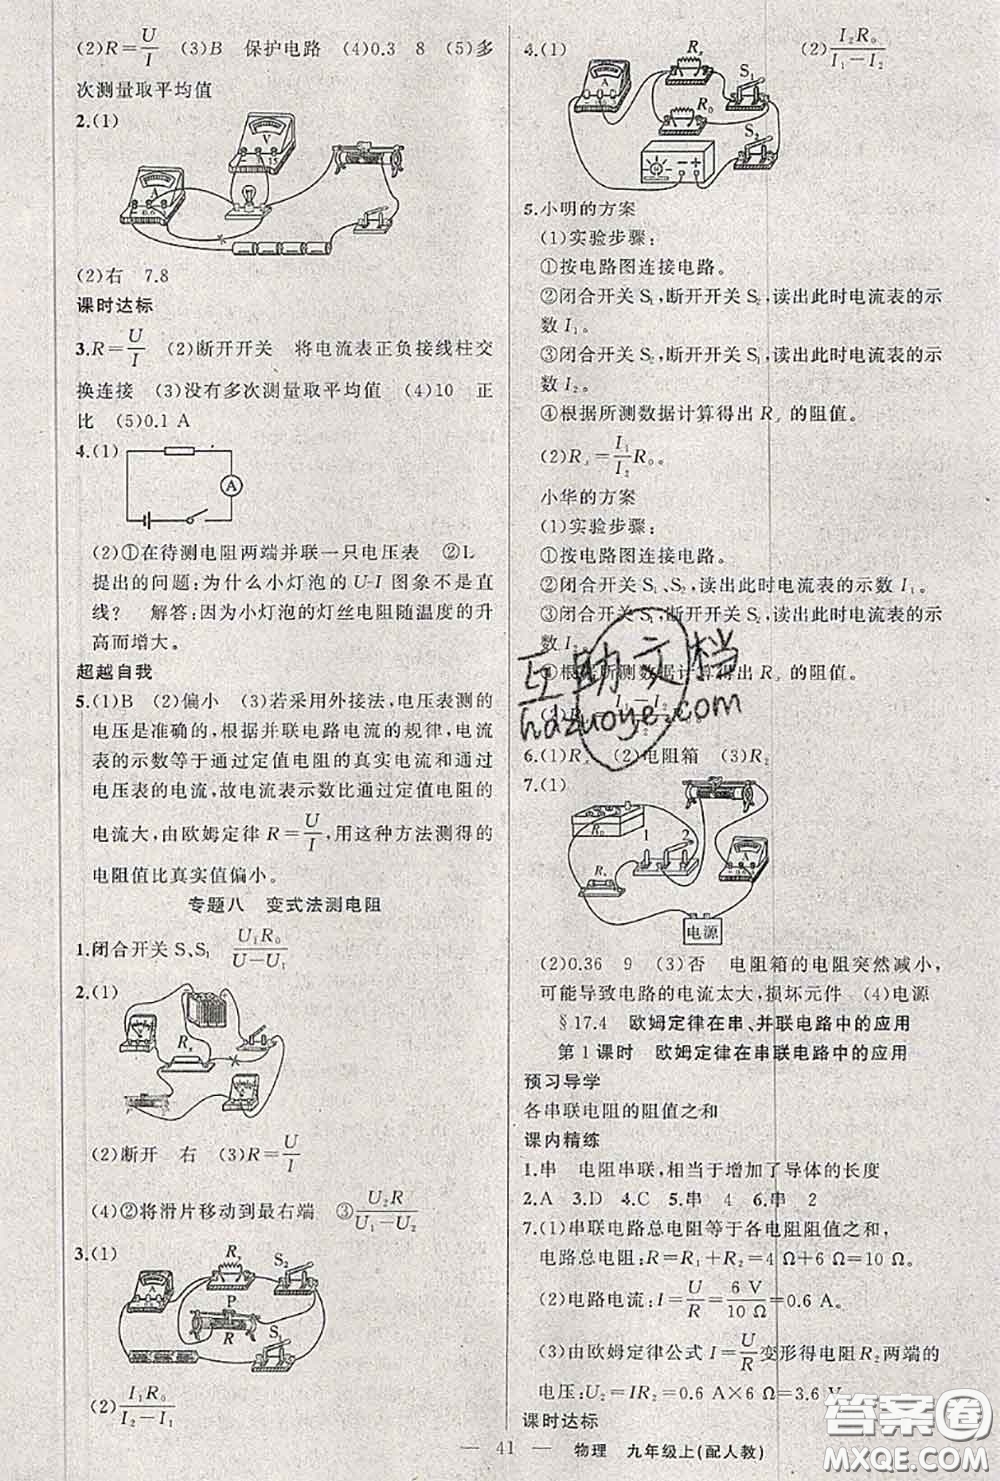 (2)R=U/I (3)B 保护电路 (4)0.3 8 (5)多
次测量取平均值
2.(1)
V
A
(2)右 7.8
课时达标
3.R=U/I (2)断开开关 将电流表正负接线柱交
换连接 (3)没有多次测量取平均值 (4)10 正
比 (5)0.1 A
4.(1)
A
(2)①在待测电阻两端并联一只电压表 ②L
提出的问题:为什么小灯泡的U-I图象不是直
线? 解答:因为小灯泡的灯丝电阻随温度的升
高而增大。
超越自我
5.(1)B (2)偏小 (3)若采用外接法,电压表测的
电压是准确的,根据并联电路电流的规律,电流
表的示数等于通过定值电阻的真实电流和通过
电压表的电流,故电流表示数比通过定值电阻的
电流大,由欧姆定律R=U/I,用这种方法测得的
电阻值比真实值偏小。
专题八 变式法测电阻
1.闭合开关S、S₁ U₁R₀/(U-U₁)
2.(1)
Rₓ
(2)断开 右 (3)R=U/I
(4)②将滑片移动到最右端 ③U₂R/(U₁-U₂)
3.(1)
Rₓ
S₂
A
P
R
S₁
(2) I₁R₀/(I₂-I₁)
4.(1) (2) I₂R₀/(I₁-I₂)
Rₓ
S₁
A
R₀
S₂
5.小明的方案
(1)实验步骤:
①按电路图连接电路。
②闭合开关S₁,断开开关S₂,读出此时电流表的示
数I₁。
③闭合开关S₂,断开开关S₁,读出此时电流表的示
数I₂。
④根据所测数据计算得出Rₓ的阻值。
(2)Rₓ=I₁/I₂ R₀。
小华的方案
(1)实验步骤:
①按电路图连接电路。
②闭合开关S₁、S₂,读出此时电流表的示数I₁。
③闭合开关S₁,断开开关S₂,读出此时电流表的示
数I₂。
④根据所测数据计算得出Rₓ的阻值。
互助文档
hdzuoye.com
6.(1)Rₓ (2)电阻箱 (3)R₂
7.(1)
R₀
1
2
Rₓ
A
电源
(2)0.36 9 (3)否 电阻箱的电阻突然减小,
可能导致电路的电流太大,损坏元件 (4)电源
§17.4 欧姆定律在串、并联电路中的应用
第1课时 欧姆定律在串联电路中的应用
预习导学
各串联电阻的阻值之和
课内精练
1.串 电阻串联,相当于增加了导体的长度
2.A 3.D 4.C 5.串 4 6.串 2
7.(1)串联电路总电阻等于各电阻阻值之和,
电路总电阻:R=R₁+R₂=4 Ω+6 Ω=10 Ω。
(2)电路电流:I=U/R=6 V/10 Ω=0.6 A。
(3)由欧姆定律公式I=U/R变形得电阻R₂两端的
电压:U₂=IR₂=0.6 A×6 Ω=3.6 V。
课时达标
— 41 — 物理 九年级上(配人教)
答案圈
MXQE.COM